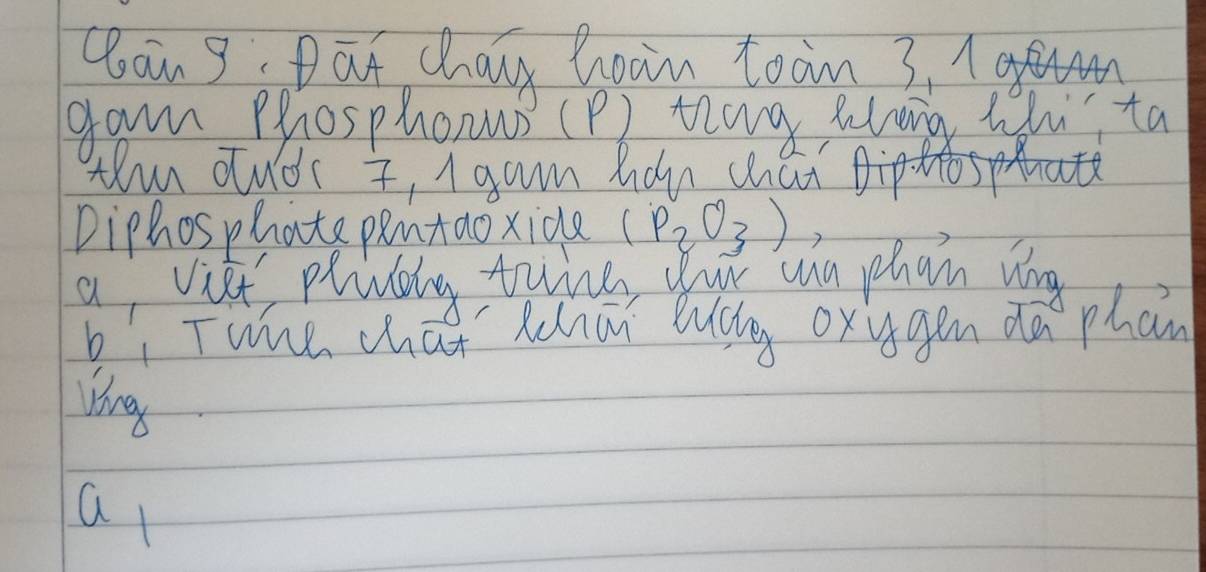 Câu 9: Đốt cháy hoàn toàn 3,1 gam
gam Phosphorus (P) trong không khí, ta
thu được 7,1 gam hợp chất Diphosphate
Diphosphate pentaoxide (P₂O₃),
a, Viết phương trình chữ của phản ứng
b, Tính chất khối lượng oxygen đã phản
ứng.
a,